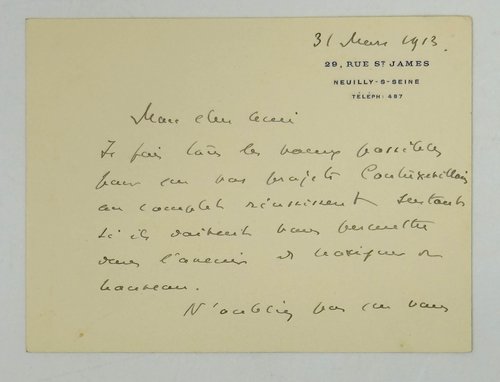 31 Mars 1913.
29, RUE ST JAMES
NEUILLY-S-SEINE
TÉLÉPH: 487
Mon cher ami
Je fais tous les voeux possibles
pour que vos projets Contrexevillois
au complet réussissent surtout
si ils doivent vous permettre
dans l'avenir de naviguer de
nouveau.
N'oubliez pas que vous